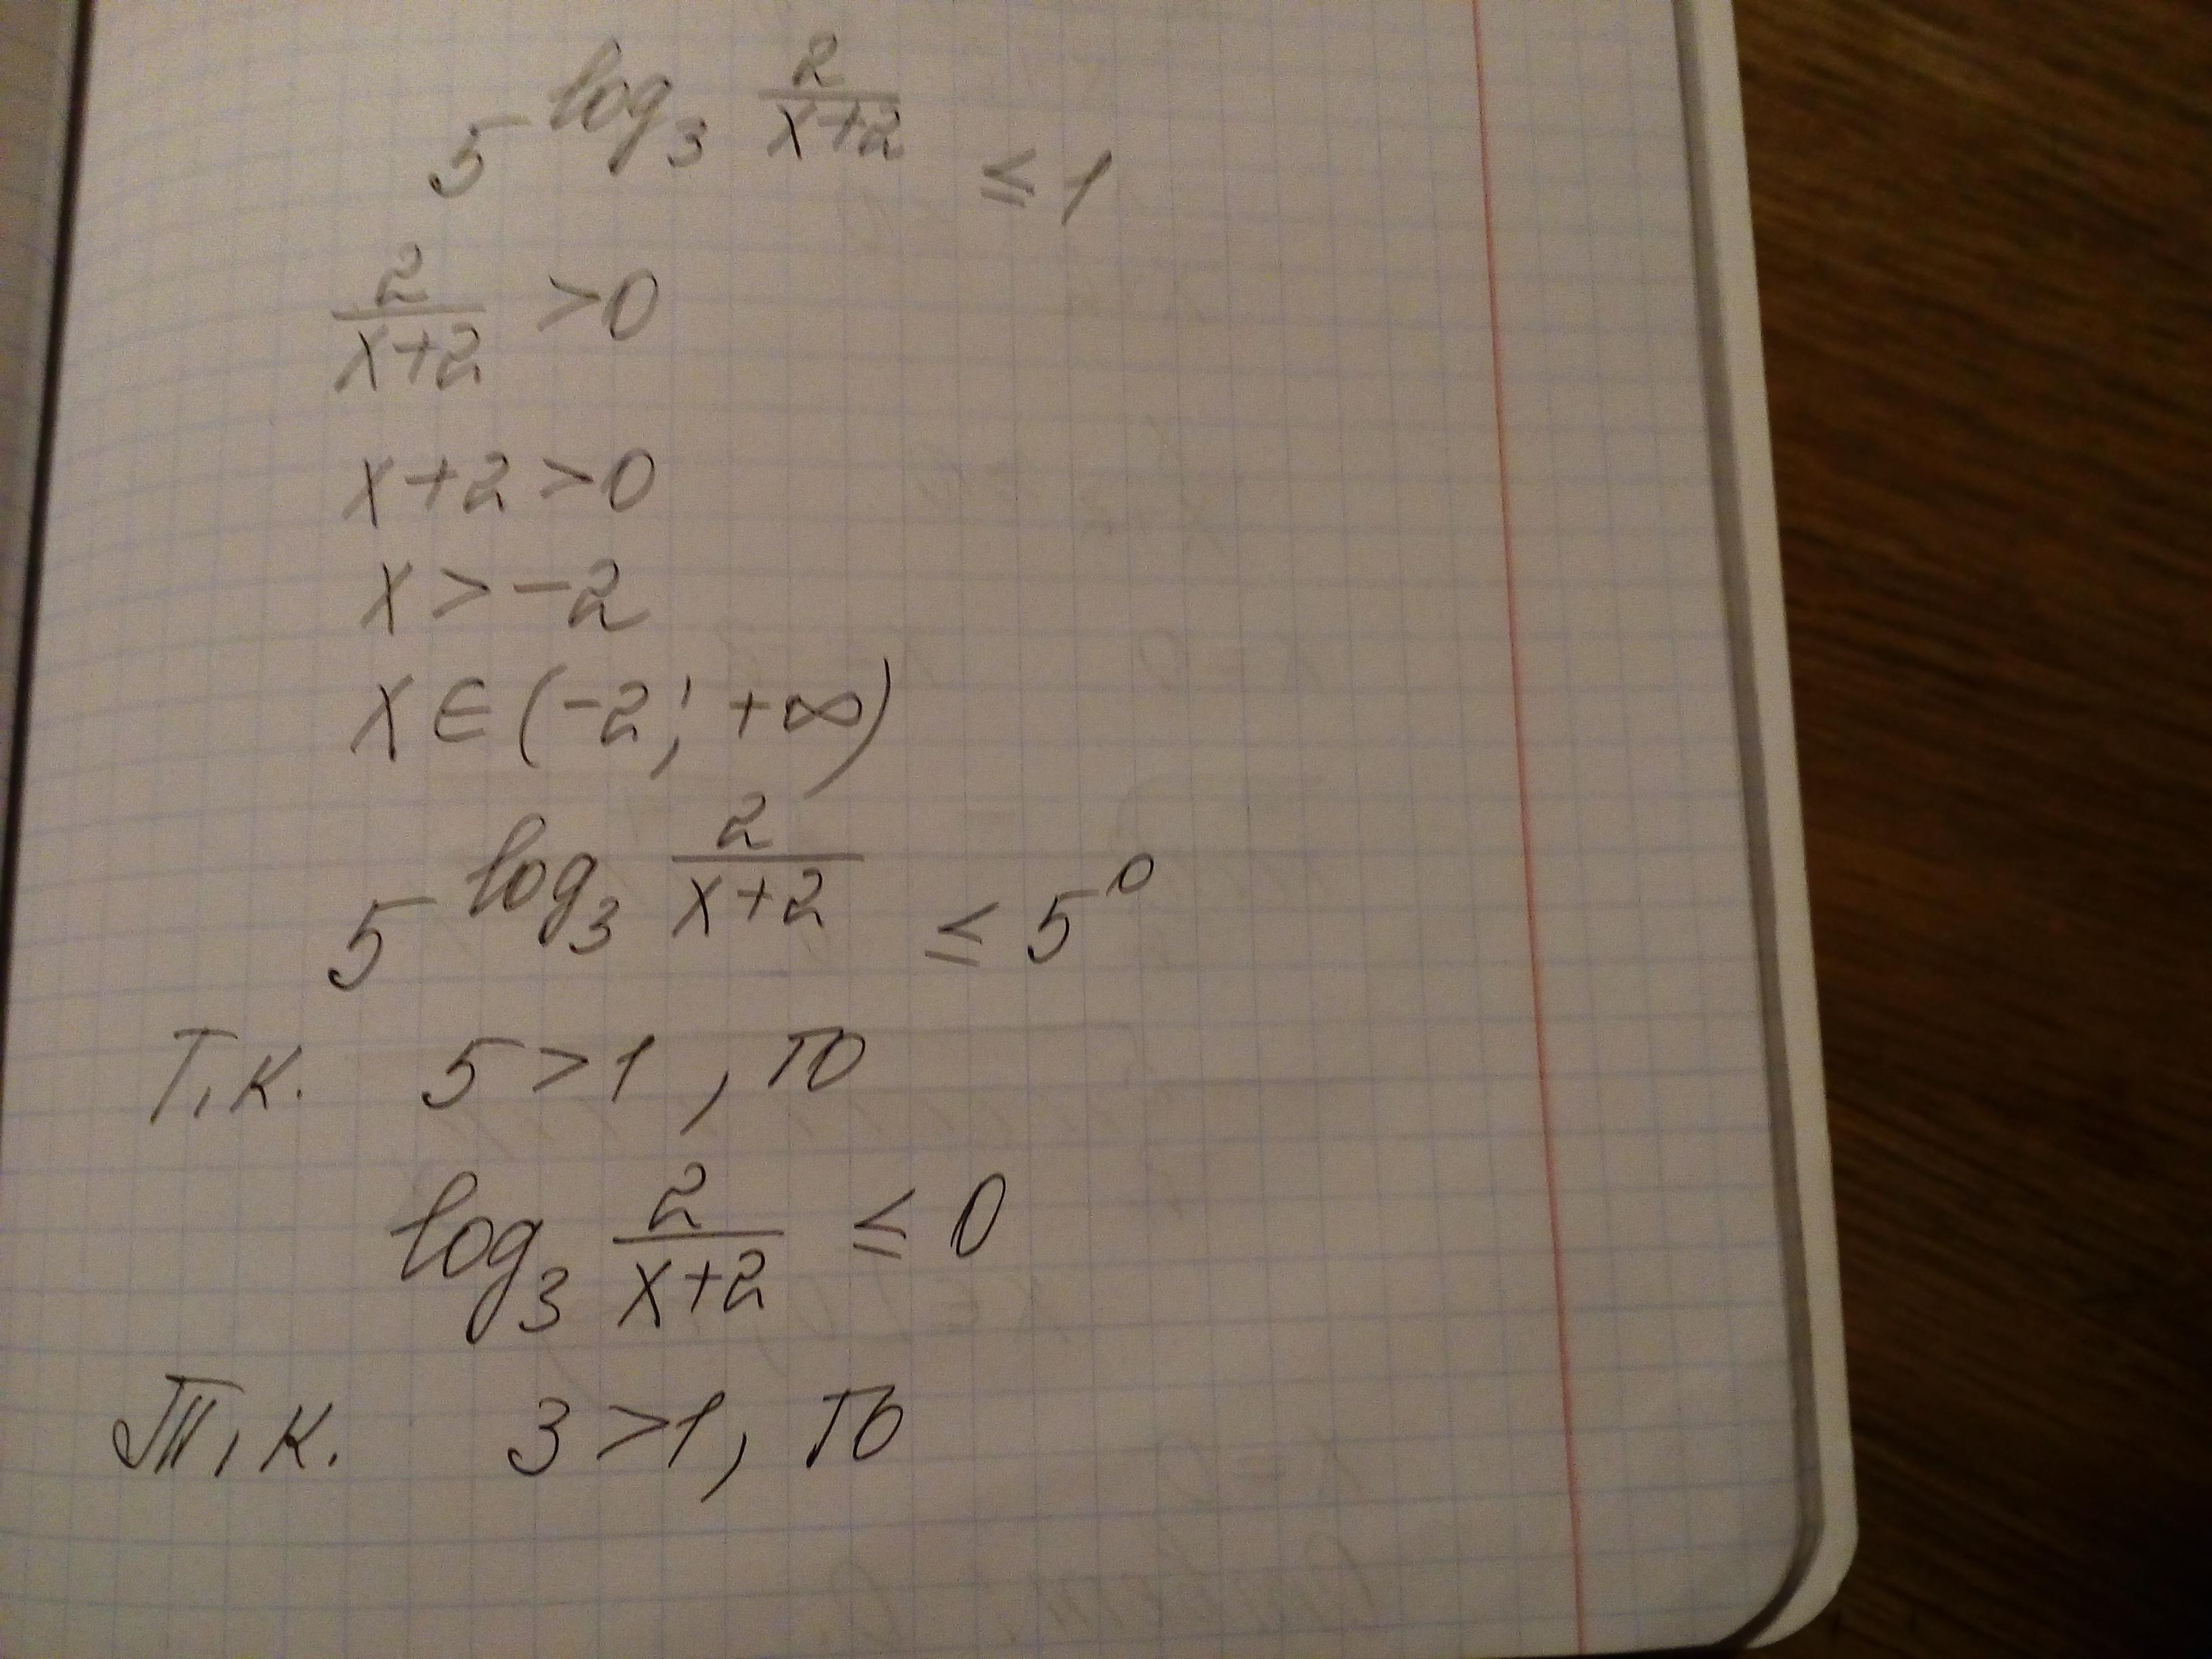 5^{log_3 \frac{2}{x+2}} ≤ 1
\frac{2}{x+2} > 0
x+2 > 0
x > -2
x ∈ (-2; +∞)
5^{log_3 \frac{2}{x+2}} ≤ 5^0
Т.к. 5 > 1, то
log_3 \frac{2}{x+2} ≤ 0
Т.к. 3 > 1, то